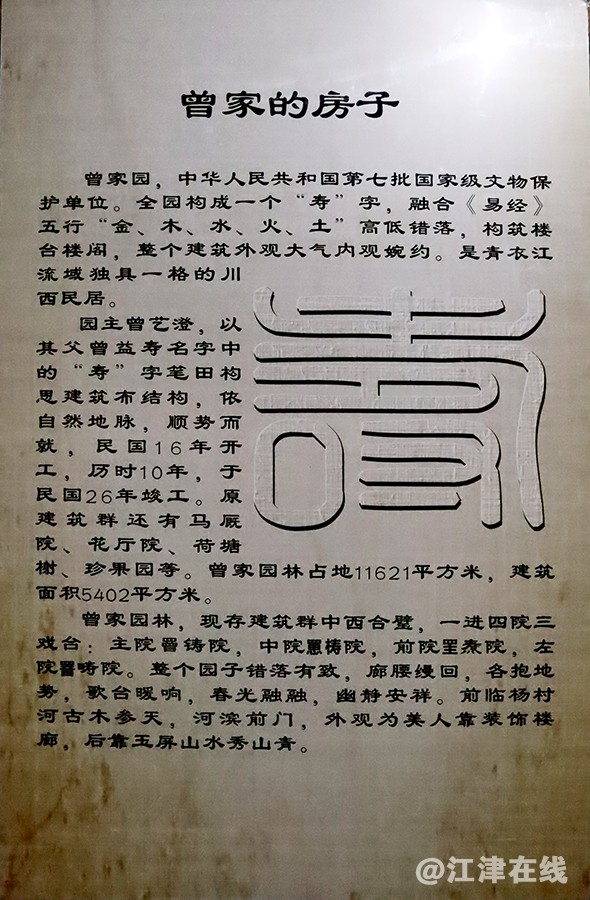 曾家的房子
曾家园，中华人民共和国第七批国家级文物保
护单位。全园构成一个“寿”字，融合《易经》
五行“金、木、水、火、土”高低错落，构筑楼
台楼阁，整个建筑外观大气内观婉约。是青衣江
流域独具一格的川
西民居。
园主曾艺澄，以
其父曾益寿名字中
的“寿”字笔田构
思建筑布结构，依
自然地脉，顺势而
就，民国16年开
工，历时10年，于
民国26年竣工。原
建筑群还有马厩
院、花厅院、荷塘
榭、珍果园等。曾家园林占地11621平方米，建筑
面积5402平方米。
曾家园林，现存建筑群中西合璧，一进四院三
戏台：主院 院，中院 院，前院 院，左
院 院。整个园子错落有致，廊腰缦回，各抱地
势，歌台暖响，春光融融，幽静安祥。前临杨村
河古木参天，河滨前门，外观为美人靠装饰楼
廊，后靠玉屏山水秀山青。
@江津在线